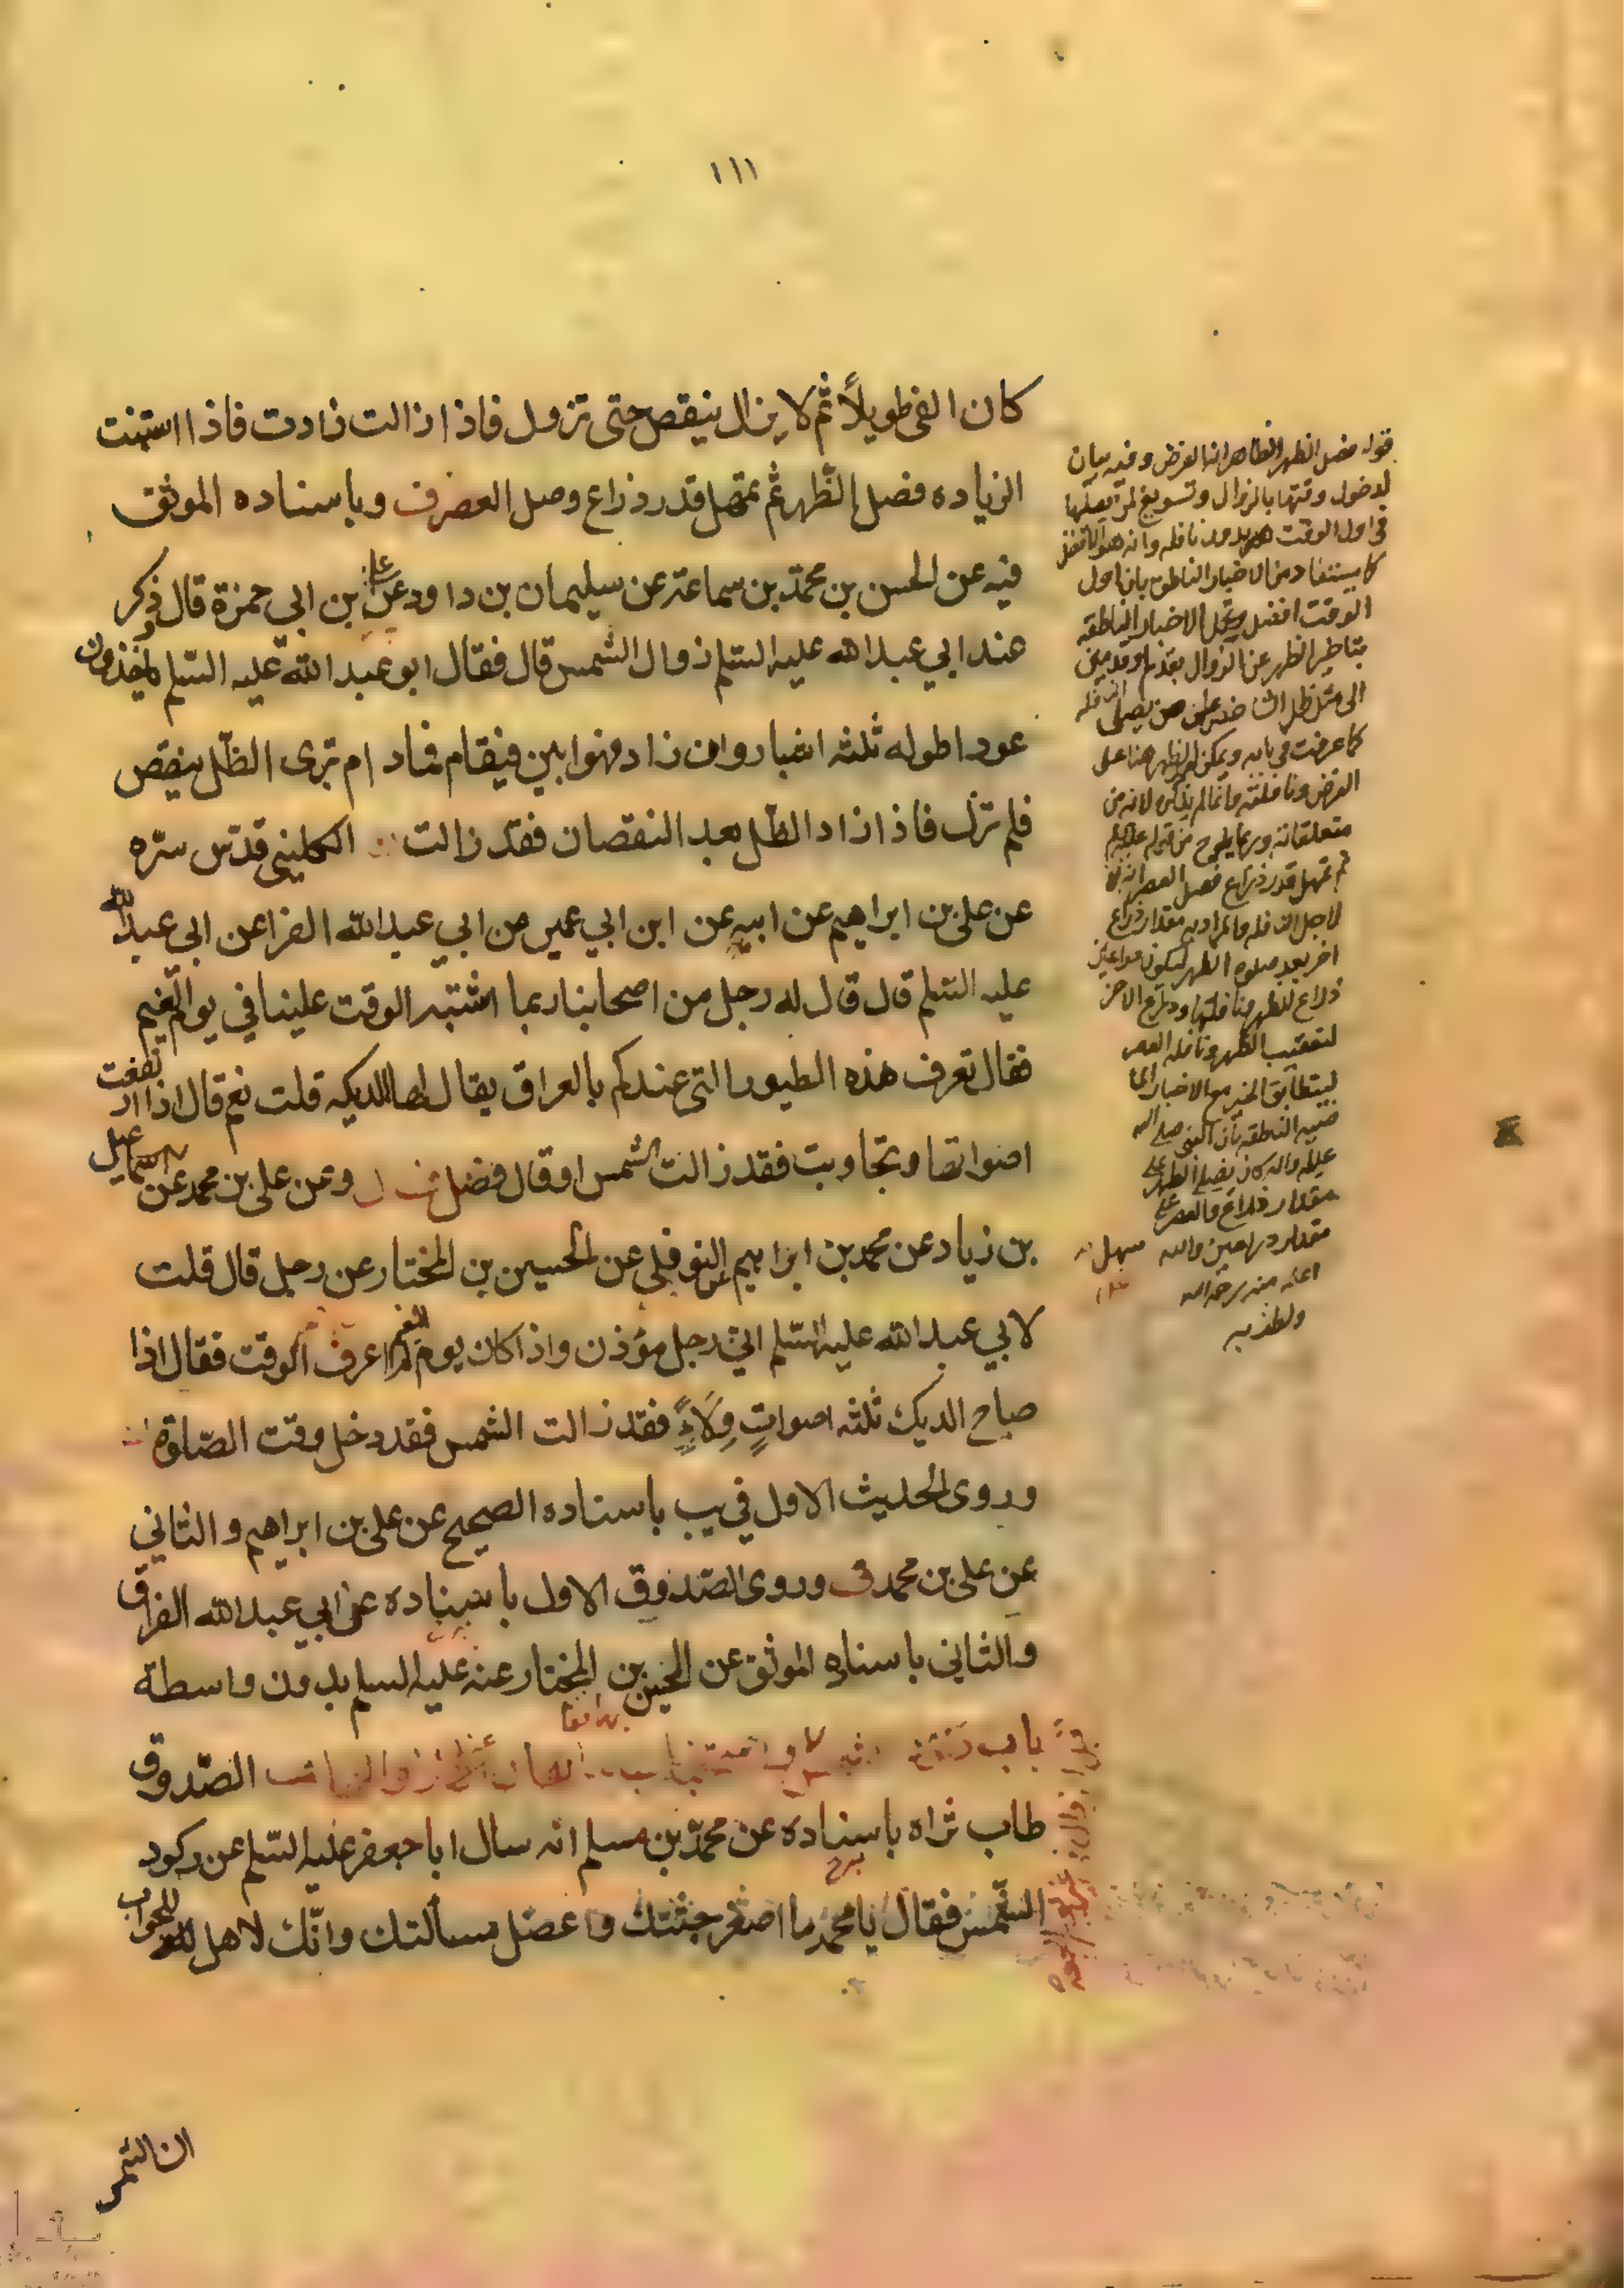 ١١١
كان الفئ طويلاً ثم لا يزال ينقص حتى تزول فاذا زالت زادت فاذا استبنت
الزياده فصل الظّهر ثم تمهل قدر ذراع وصل العصر ف وباسناده الموثق
فيه عن الحسن بن محمّد بن سماعة عن سليمان بن داود عن علي بن ابي حمزة قال ذكر
عند ابي عبد الله عليه السّلم زوال الشمس قال فقال ابو عبد الله عليه السّلم تاخذون
عودا طوله ثلثه اشبار وان زاد فهو ابين فيقام فما دام ترى الظّل ينقص
فلم تزل فاذا زاد الظّل بعد النقصان فقد زالت الكليني قدّس سرّه
عن علي بن ابراهيم عن ابيه عن ابن ابي عمير عن ابي عبد الله الفرا عن ابي عبد الله
عليه السّلم قال قال له رجل من اصحابنا ربما اشتبه الوقت علينا في يوم الغيم
فقال تعرف هذه الطيور التي عندكم بالعراق يقال لها الديكه قلت نعم قال اذا ارتفعت
اصواتها وتجاوبت فقد زالت الشمس او قال فصل وعن علي بن محمد عن سهل
بن زياد عن محمد بن ابراهيم النوفلي عن الحسين بن المختار عن رجل قال قلت
لابي عبد الله عليه السّلم اني رجل مؤذن واذا كان يوم الغيم لم اعرف الوقت فقال اذا
صاح الديك ثلثه اصواتٍ وِلَاءً فقد زالت الشمس فقد دخل وقت الصّلوة
وروى الحديث الاول في يب باسناده الصحيح عن علي بن ابراهيم والثاني
عن علي بن محمد وروى الصّدوق الاول باسناده عن ابي عبد الله الفرا ق
والثاني باسناده الموثق عن الحسين بن المختار عنه عليه السلم بدون واسطة
باب الصّدوق
طاب ثراه باسناده عن محمّد بن مسلم انه سال ابا جعفر عليه السّلم عن ركود
الشّمس فقال يا محمّد ما اصغر جثتك واعضل مسألتك وانّك لاهل للجواب
ان الشمس
قوله فصل الظهر الظاهر انها الفرض وفيه بيان
لدخول وقتها بالزوال وتسويغ لمن يصلّها
في اول الوقت بدون نافله وانه هو الافضل
كما يستفاد من الاخبار الناطقه بان اول
الوقت افضل وتحمل الاخبار الناطقه
بتاخير الظهر عن الزوال بقدم او قدمين
الى مثل ظل الشاخص على من يصلى النافله
كما عرفت في بابه ويمكن حمل الظهر هنا على
الفرض ونافلته وانما لم يذكر لانه من
متعلقاته وربما يلوح من قوله عليه السلم
ثم تمهل قدر ذراع فصل العصر انه
لاجل النافله والمراد به مقدار ذراع
اخر بعد صلوة الظهر ليكون ذراعين
ذراع للظهر ونافلتها وذراع الاخر
لتعقيب الظهر ونافله العصر
ليتطابق الخبر مع الاخبار
الناطقه بان النبي صلى الله
عليه واله كان يصلي الظهر على
مقدار ذراع والعصر على
مقدار ذراعين والله
اعلم منه رحمه الله
سهل